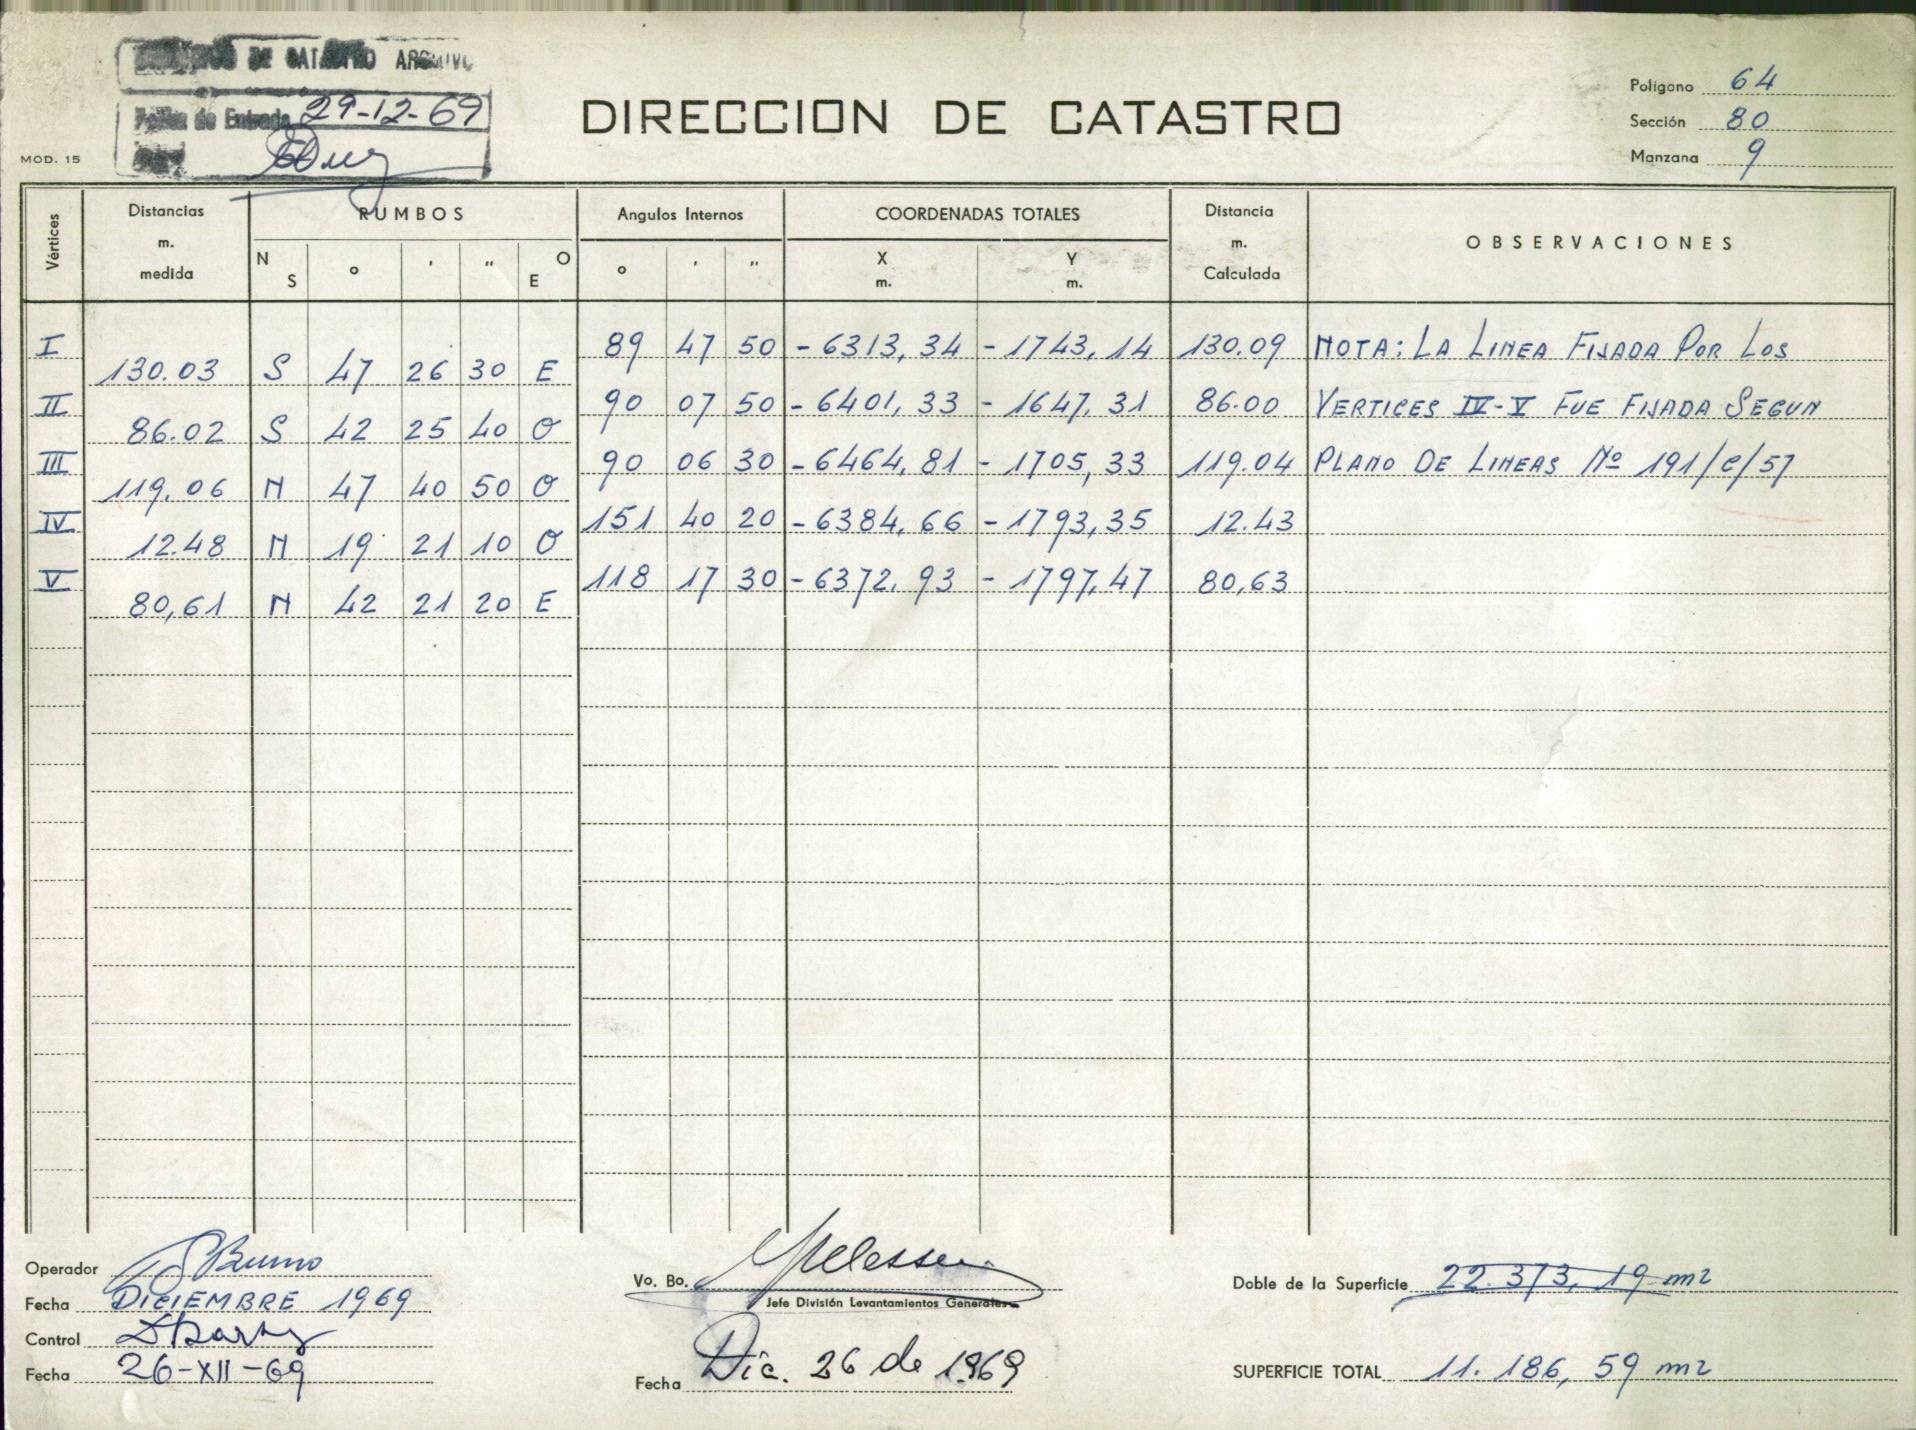 DE CATASTRO ARCHIVO
de Entrada 29-12-69
MOD. 15
DIRECCION DE CATASTRO
Polígono 64
Sección 80
Manzana 9
Vértices
Distancias m. medida
RUMBOS
N S ° ' " O E
Angulos Internos
° ' "
COORDENADAS TOTALES
X m. Y m.
Distancia m. Calculada
OBSERVACIONES
I 89 47 50 -6313,34 -1743,14 130.09 NOTA: LA LINEA FIJADA POR LOS
130.03 S 47 26 30 E
II 90 07 50 -6401,33 -1647,31 86.00 VERTICES IV-V FUE FIJADA SEGUN
86.02 S 42 25 40 O
III 90 06 30 -6464,81 -1705,33 119.04 PLANO DE LINEAS Nº 191/C/57
119.06 N 47 40 50 O
IV 151 40 20 -6384,66 -1793,35 12.43
12.48 N 19 21 10 O
V 118 17 30 -6372,93 -1797,47 80,63
80,61 N 42 21 20 E
Operador Bruno
Fecha DICIEMBRE 1969
Control
Fecha 26-XII-69
Vo. Bo.
Jefe División Levantamientos Generales
Fecha Dic. 26 de 1969
Doble de la Superficie 22.373,19 m2
SUPERFICIE TOTAL 11.186,59 m2